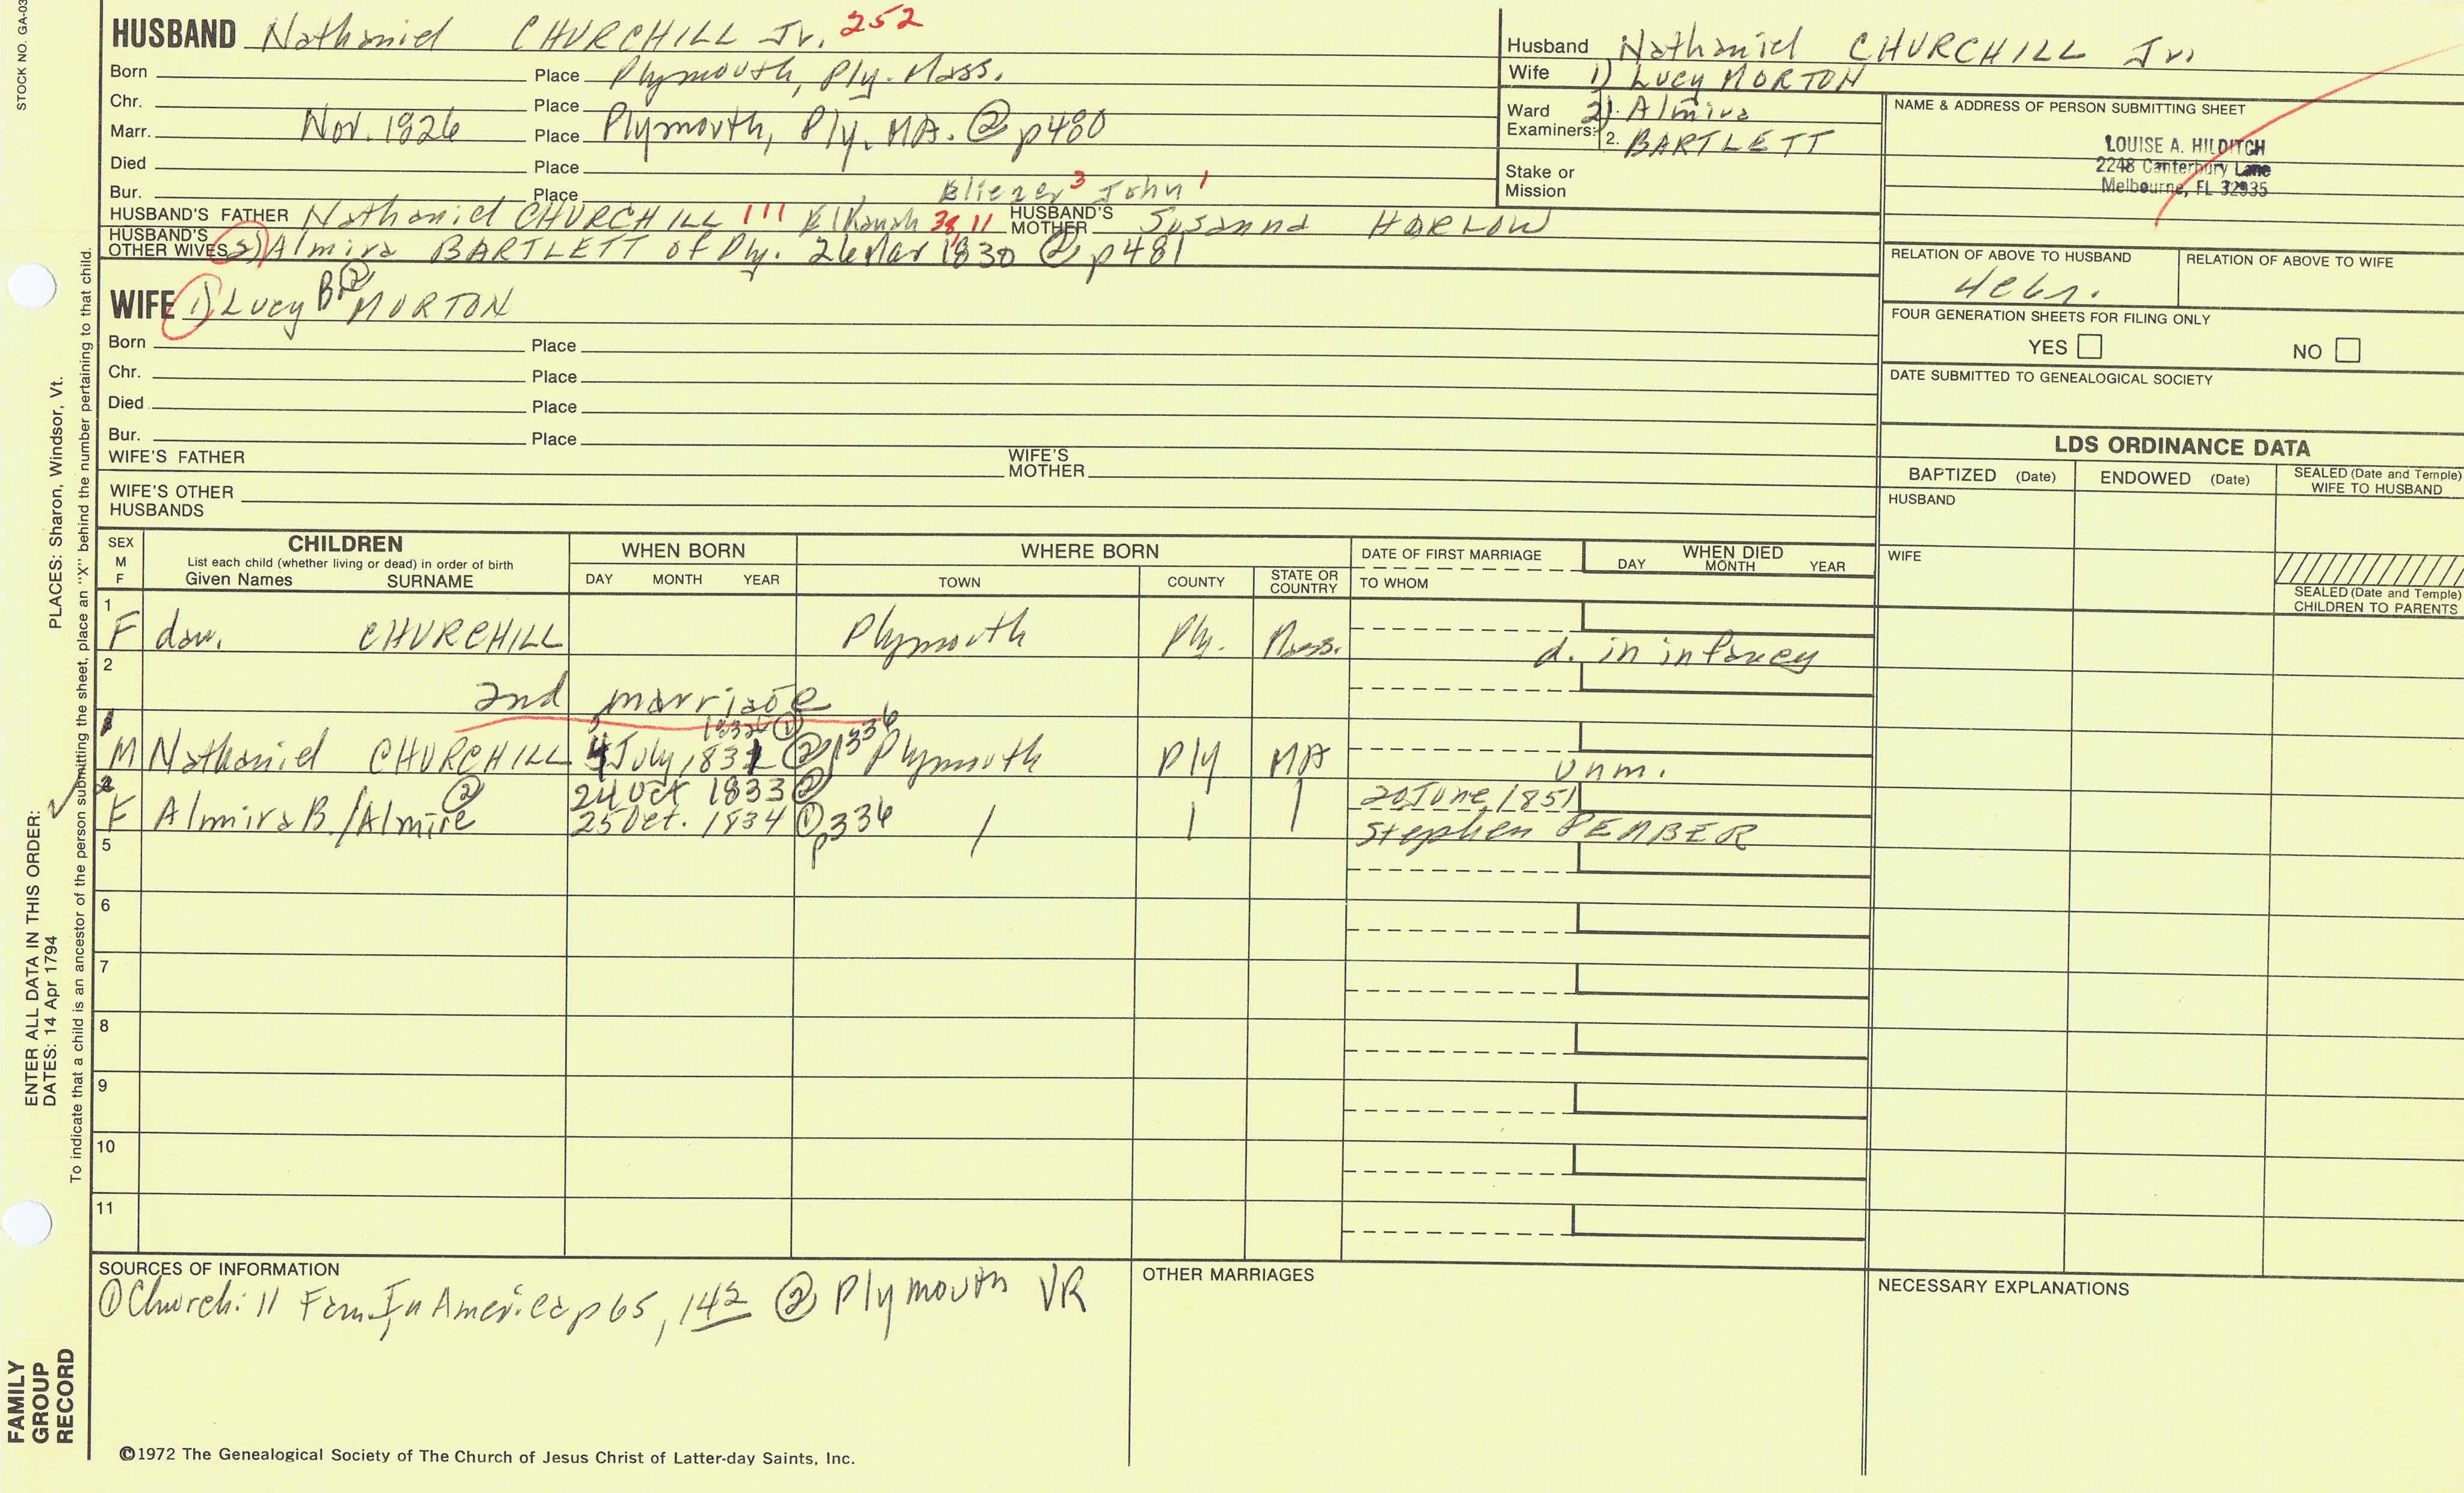 STOCK NO. GA-03
HUSBAND Nathaniel CHURCHILL Jr. 252
Born Place Plymouth, Ply. Mass.
Chr. Place
Marr. Nov. 1826 Place Plymouth, Ply. MA. ② p480
Died Place
Bur. Place Eliezer 3 John 1
HUSBAND'S FATHER Nathaniel CHURCHILL 111 Elkanah 38, 11 HUSBAND'S MOTHER Susanna HARLOW
HUSBAND'S OTHER WIVES 2) Almira BARTLETT of Ply. 26 Mar 1830 ② p481
WIFE 1) Lucy B② MORTON
Born Place
Chr. Place
Died Place
Bur. Place
WIFE'S FATHER WIFE'S MOTHER
WIFE'S OTHER HUSBANDS
Husband Nathaniel CHURCHILL Jr.
Wife 1) Lucy MORTON
Ward 2) Almira
Examiners: 2. BARTLETT
Stake or Mission
NAME & ADDRESS OF PERSON SUBMITTING SHEET
LOUISE A. HILDITCH
2248 Canterbury Lane
Melbourne, FL 32935
RELATION OF ABOVE TO HUSBAND RELATION OF ABOVE TO WIFE
4c6r.
FOUR GENERATION SHEETS FOR FILING ONLY
YES NO
DATE SUBMITTED TO GENEALOGICAL SOCIETY
LDS ORDINANCE DATA
BAPTIZED (Date) ENDOWED (Date) SEALED (Date and Temple) WIFE TO HUSBAND
HUSBAND
WIFE
SEALED (Date and Temple) CHILDREN TO PARENTS
SEX M F CHILDREN WHEN BORN WHERE BORN DATE OF FIRST MARRIAGE WHEN DIED
List each child (whether living or dead) in order of birth
Given Names SURNAME DAY MONTH YEAR TOWN COUNTY STATE OR COUNTRY TO WHOM DAY MONTH YEAR
1
F dau. CHURCHILL Plymouth Ply. Mass. d. in infancy
2
2nd marriage
1832 ①
M Nathaniel CHURCHILL 4 July, 1831 ② p336 Plymouth Ply MA unm.
24 Oct 1833 ② 20 June, 1851
F Almira B./Almire ② 25 Oct. 1834 ① p336 / / / Stephen PEMBER
5
6
7
8
9
10
11
SOURCES OF INFORMATION
① Churchill Fam. In America p 65, 142 ② Plymouth VR
OTHER MARRIAGES
NECESSARY EXPLANATIONS
©1972 The Genealogical Society of The Church of Jesus Christ of Latter-day Saints, Inc.
FAMILY GROUP RECORD
ENTER ALL DATA IN THIS ORDER:
DATES: 14 Apr 1794
PLACES: Sharon, Windsor, Vt.
To indicate that a child is an ancestor of the person submitting the sheet, place an "X" behind the number pertaining to that child.